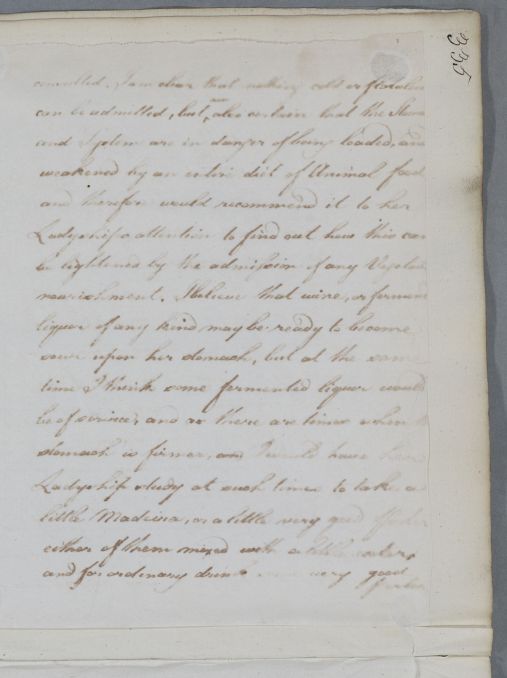 333
committed. I am clear that nothing cold or flatulent
can be admitted, but am also certain that the Stoma
and System are in danger of being loaded, and
weakened by an entire diet of Animal food
and therefore would recommend it to her
Ladyship's attention to find out how this can
be lightened by the admission of any Vegetable
nourishment. I believe that wine, or ferment
liquor of any kind may be ready to become
sour upon her stomach, but at the same
time I think some fermented liquor would
be of service, and as there are times when
stomach is firmer, I would have her
Ladyship study at such times to take a
little Madeira, or a little very good
either of them mixed with a little water,
and for ordinary drink very good